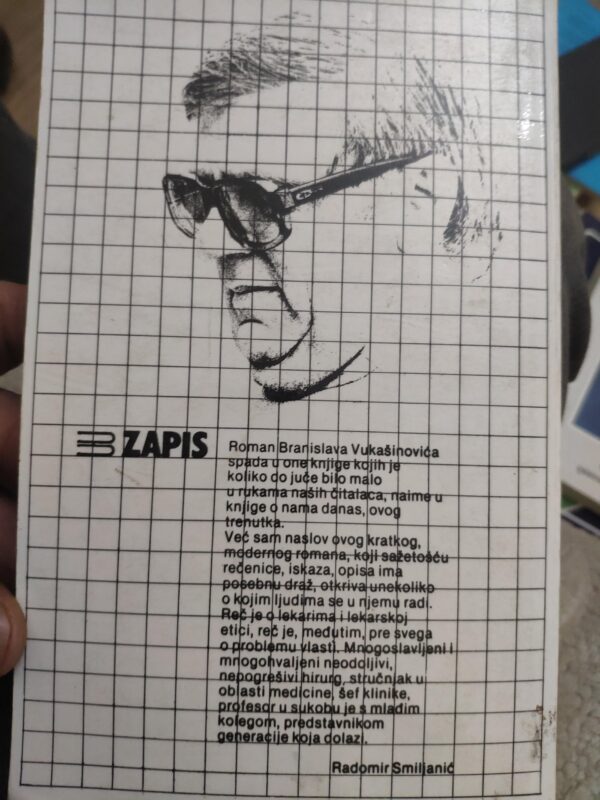 ZAPIS
Roman Branislava Vukašinovića
spada u one knjige kojih je
koliko do juče bilo malo
u rukama naših čitalaca, naime u
knjige o nama danas, ovog
trenutka.
Već sam naslov ovog kratkog,
modernog romana, koji sažetošću
rečenice, iskaza, opisa ima
posebnu draž, otkriva unekoliko
o kojim ljudima se u njemu radi.
Reč je o lekarima i lekarskoj
etici, reč je, međutim, pre svega
o problemu vlasti. Mnogoslavljeni i
mnogohvaljeni neodoljivi,
nepogrešivi hirurg, stručnjak u
oblasti medicine, šef klinike,
profesor u sukobu je s mlađim
kolegom, predstavnikom
generacije koja dolazi.
Radomir Smiljanić